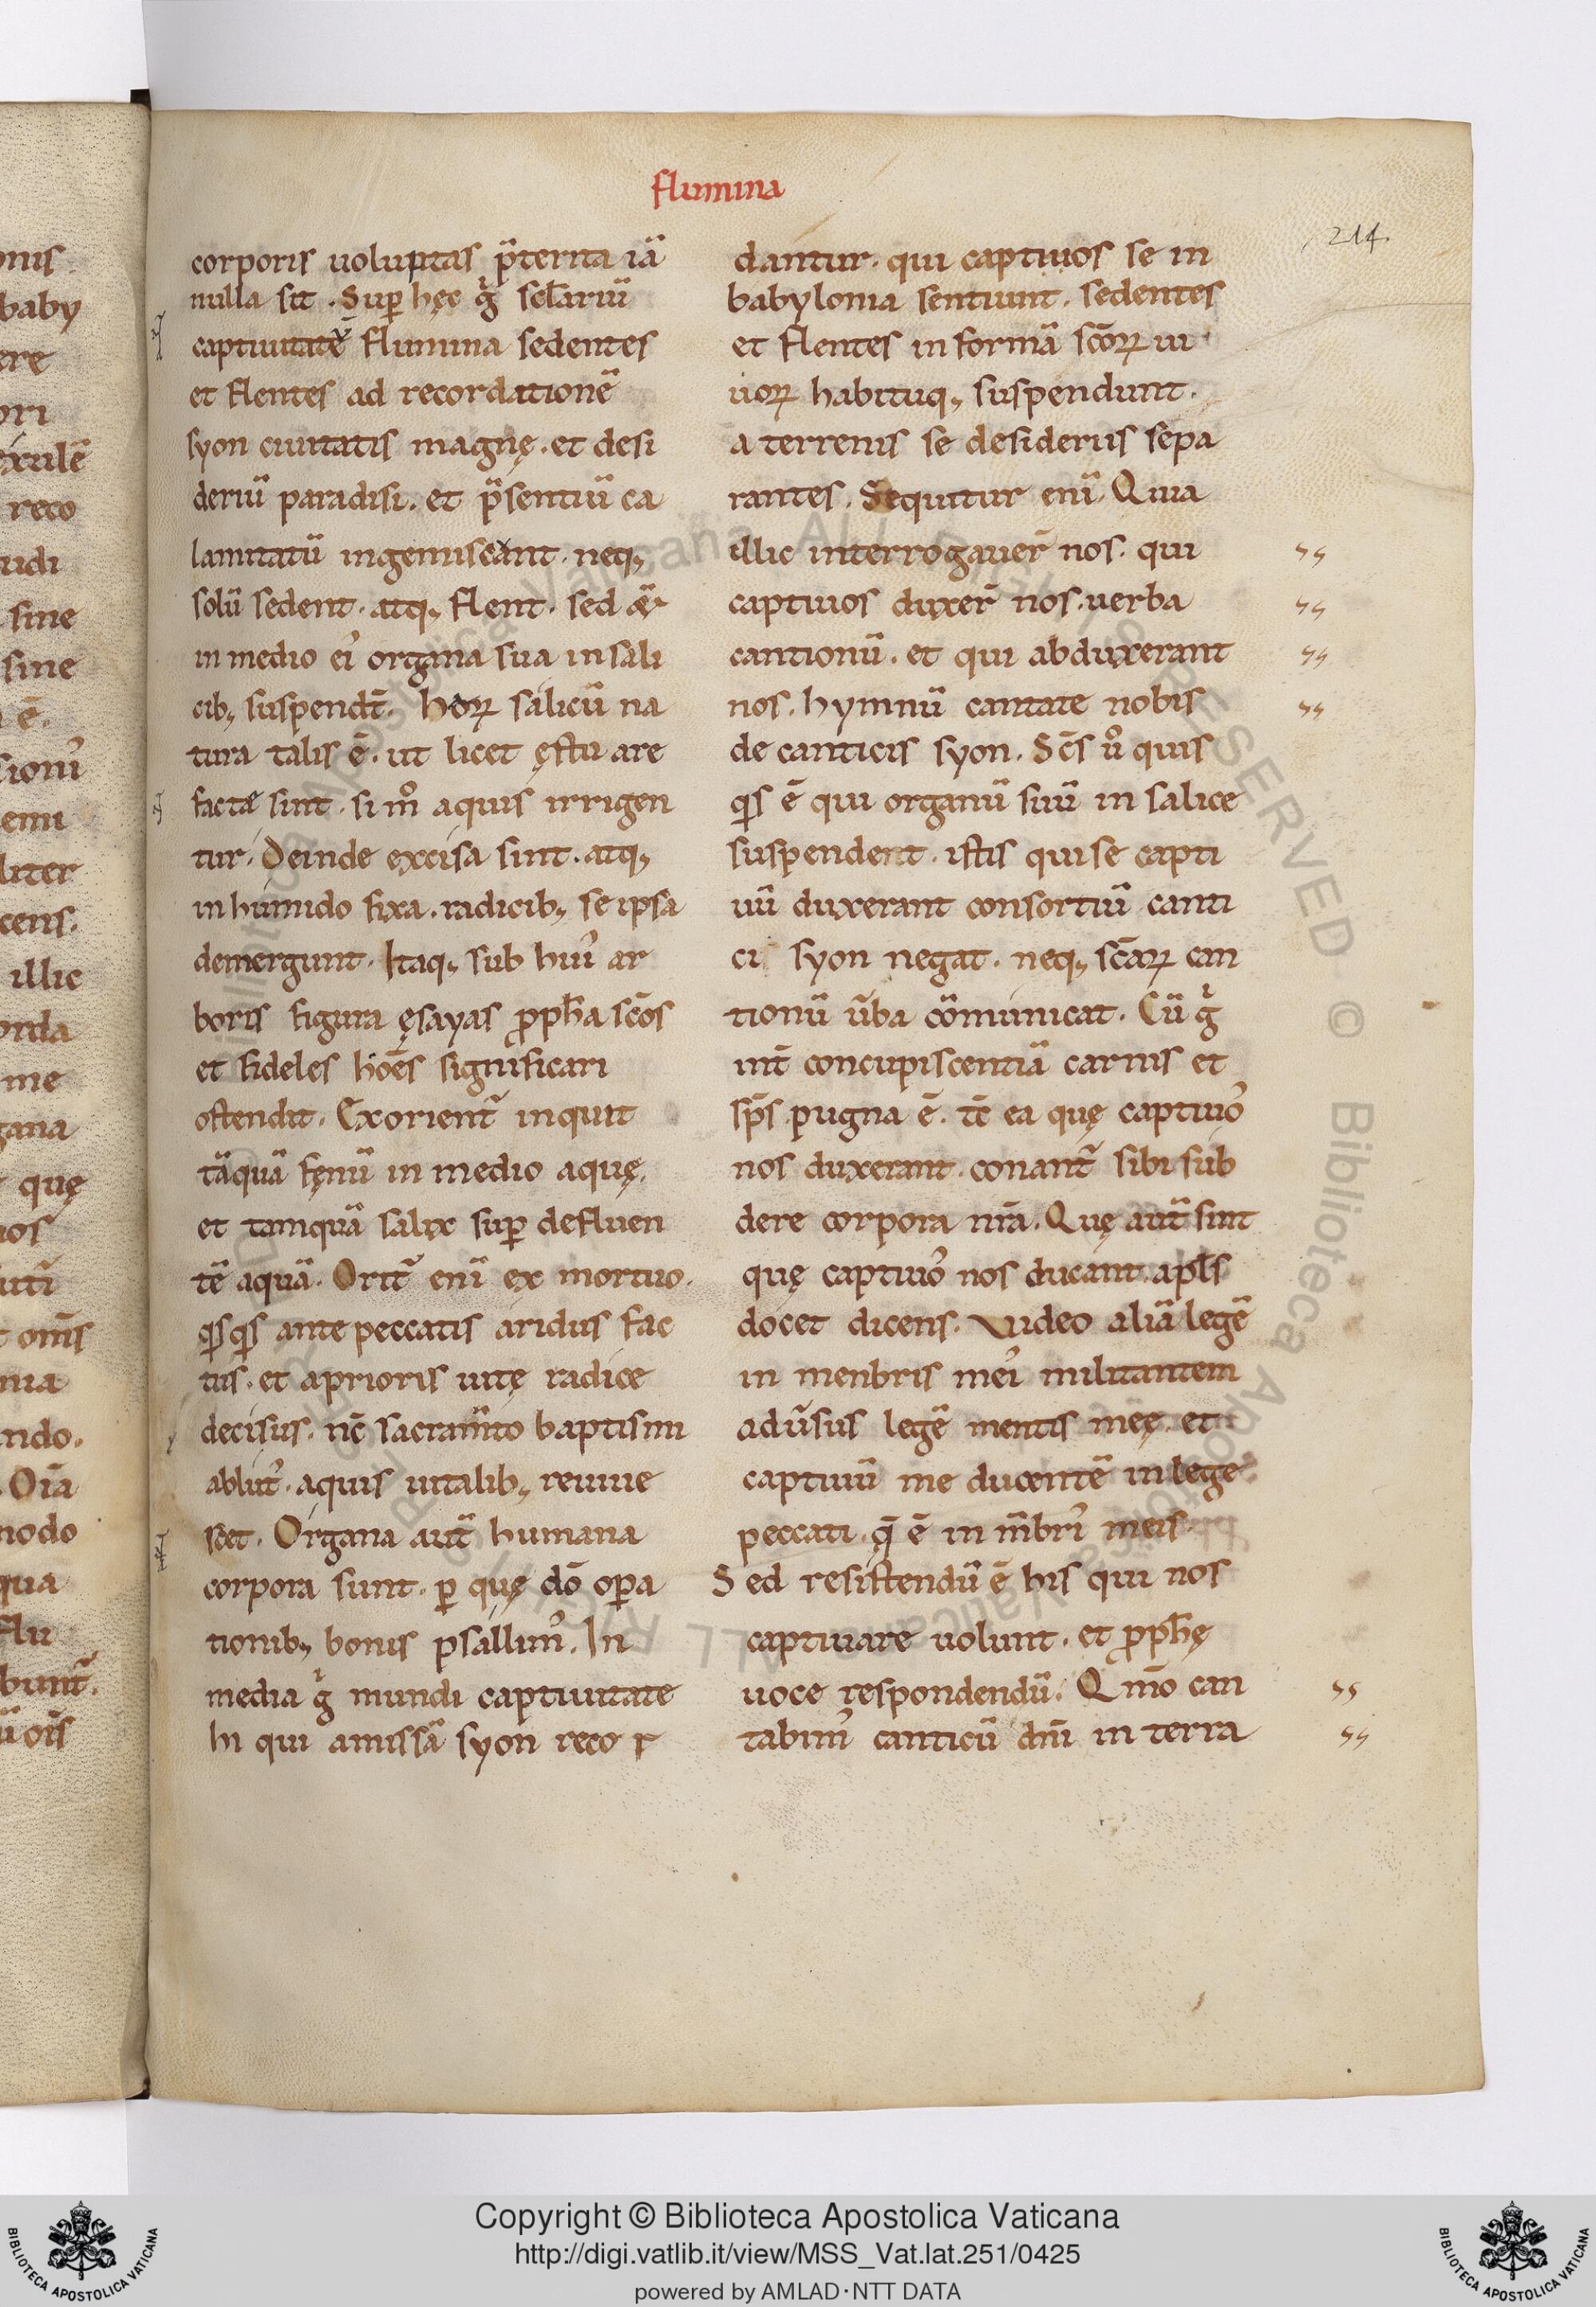 flumina
214.
corporis uoluptas p̃terita iã
nulla sit. Sup̱ hęc g̊ sctariũ
captiuitatẽ flumina sedentes
et flentes ad recordationẽ
syon ciuitatis magnę. et desi
deriũ paradisi. et p̃sentiũ ca
lamitatũ ingemiscant. neq;
solũ sedent. atq; flent. sed
in medio ei᾽ organa sua in sali
cib; suspendt̄. hoꝝ salicũ na
tura talis ē. ut licet ęstu are
factæ sint. si m̊ aquis irrigen
tur. Deinde excisa sint. atq;
in humido fixa. radicib; se ipsa
demergunt. Itaq; sub hui᾽ ar
boris figura ęsayas ꝓph̄a sc̄os
et fideles hōēs significari
ostendit. Exorient᷑ inquit
tãquã fęnũ in medio aquę.
et tamquã salix sup̱ defluen
tẽ aquã. Orit᷑ enĩ ex mortuo.
qͥsqͥs ante peccatis aridus fac
tus. et a prioris uitę radice
decisus. nc̄ sacram̃to baptismi
ablut᾽. aquis uitalib; reuiue
scet. Organa aut̃ humana
corpora sunt. ꝑ quę dō oꝑa
tionib; bonis psallim᾽. In
media g̊ mundi captiuitate
hi qui amissã syon recor
dantur. qui captiuos se in
babylonia sentiunt. sedentes
et flentes in formã sc̄oꝝ ui
uoꝝ habituq; suspendunt.
a terrenis se desideriis sepa
rantes. Sequitur enĩ. Quia
illic interrogauer̄ nos. qui
captiuos duxer̄ nos. uerba
cantionũ. et qui abduxerant
nos. hymnũ cantate nobis
de canticis syon. Sc̄s ů quis
qͥs ē qui organũ suũ in salice
suspendent. istis qui se capti
uũ duxerant consortiũ canti
ci syon negat. neq; sc̄aꝝ can
tionũ ũba cõmunicat. Cũ g̊
int̄ concupiscentiã carnis et
sp̄s pugna ē. tē ea quę captiuo᾽
nos duxerant. conant᷑ sibi sub
dere corpora nr̄a. Quę aut̃ sint
quę captiuo᾽ nos ducant. apl̄s
docet dicens. Video aliã legẽ
in menbris mei᾽ militantem
adũsus legẽ mentis meę. et
captiuũ me ducentẽ in lege
peccati. q̄ ē in m̃bri᾽ meis.
Sed resistendũ ē his qui nos
captiuare uolunt. et ꝓph̄ę
uoce respondendũ. Qm̄o can
tabim᾽ canticũ dn̄i in terra
onis
baby
ere
ori
exulẽ
reco
udi
sine
sine
ē.
sioni᾽
emi
liter
cens.
illic
orda
me
gana
quę
uos
om̄s
nia
ndo.
Oīa
modo
qua
flu
bunt᷑.
ũ ois̄
Copyright © Biblioteca Apostolica Vaticana
http://digi.vatlib.it/view/MSS_Vat.lat.251/0425
powered by AMLAD·NTT DATA
BIBLIOTECA APOSTOLICA VATICANA
BIBLIOTECA APOSTOLICA VATICANA